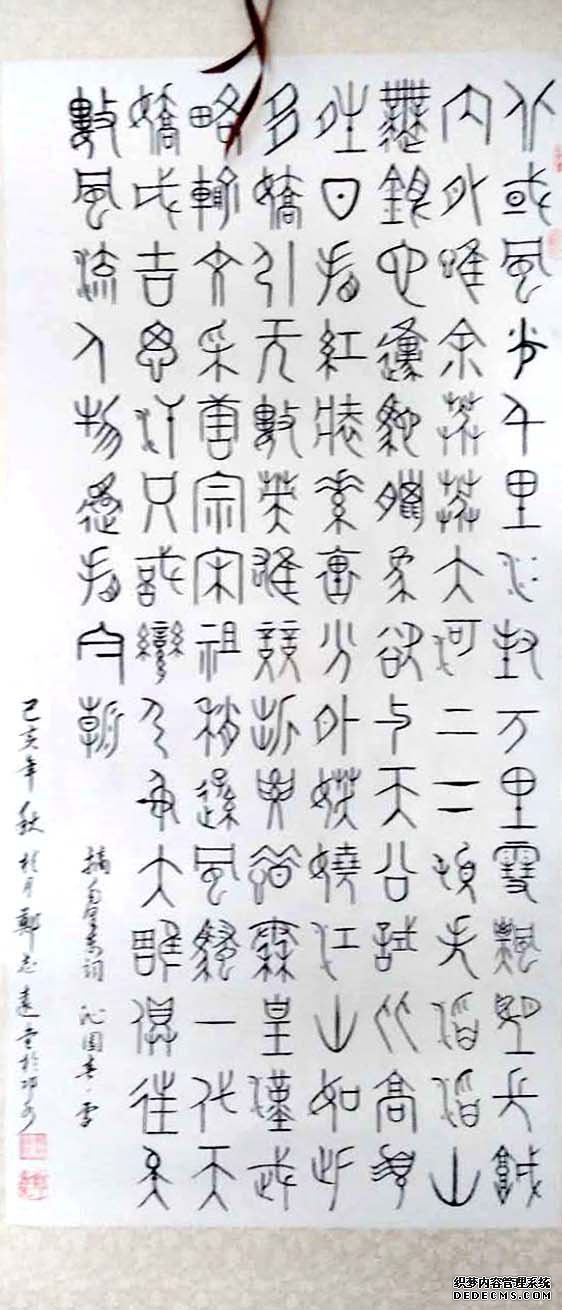 北或風光千里冰封万里雪飄望長城
內外唯余莽莽大河上下頓失滔滔山
舞銀蛇原馳蠟象欲与天公試比高須
晴日看紅裝素裹分外妖嬈江山如此
多嬌引无數英雄競折腰惜秦皇漢武
略輸文采唐宗宋祖稍遜風騷一代天
嬌成吉思汗只識彎弓射大雕俱往矣
數風流人物還看今朝
摘毛泽东词 沁园春雪
己亥年秋 鄭志遠書於
织梦内容管理系统
DEDECMS.COM